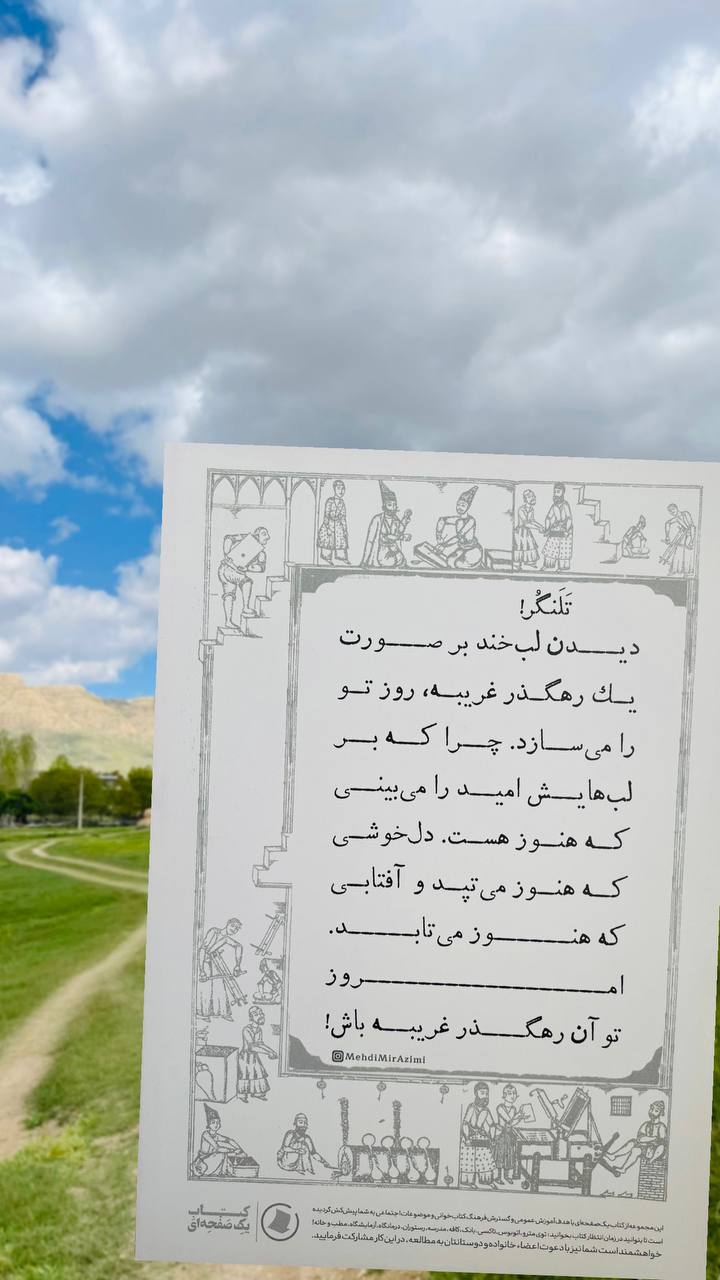 تَلَنگُر!
دیدن لب‌خند بر صورت
یك رهگذر غریبه، روز تو
را می‌سازد. چرا که بر
لب‌هایش امید را می‌بینی
که هنوز هست. دل‌خوشی
که هنوز می‌تپد و آفتابی
که هنوز می‌تابد.
امروز
تو آن رهگذر غریبه باش!
MehdiMirAzimi
کتاب
یک‌صفحه‌ای
این مجموعه از کتاب یک‌صفحه‌ای با هدف آموزش عمومی و گسترش فرهنگ کتاب‌خوانی و موضوعات اجتماعی به شما پیش‌کش گردیده
است تا بتوانید در زمان انتظار کتاب بخوانید: توی مترو، اتوبوس، تاکسی، بانک، کافه، مدرسه، رستوران، درمانگاه، آزمایشگاه، مطب و خانه!
خواهشمند است شما نیز با دعوت اعضاء خانواده و دوستانتان به مطالعه، در این کار مشارکت فرمایید.